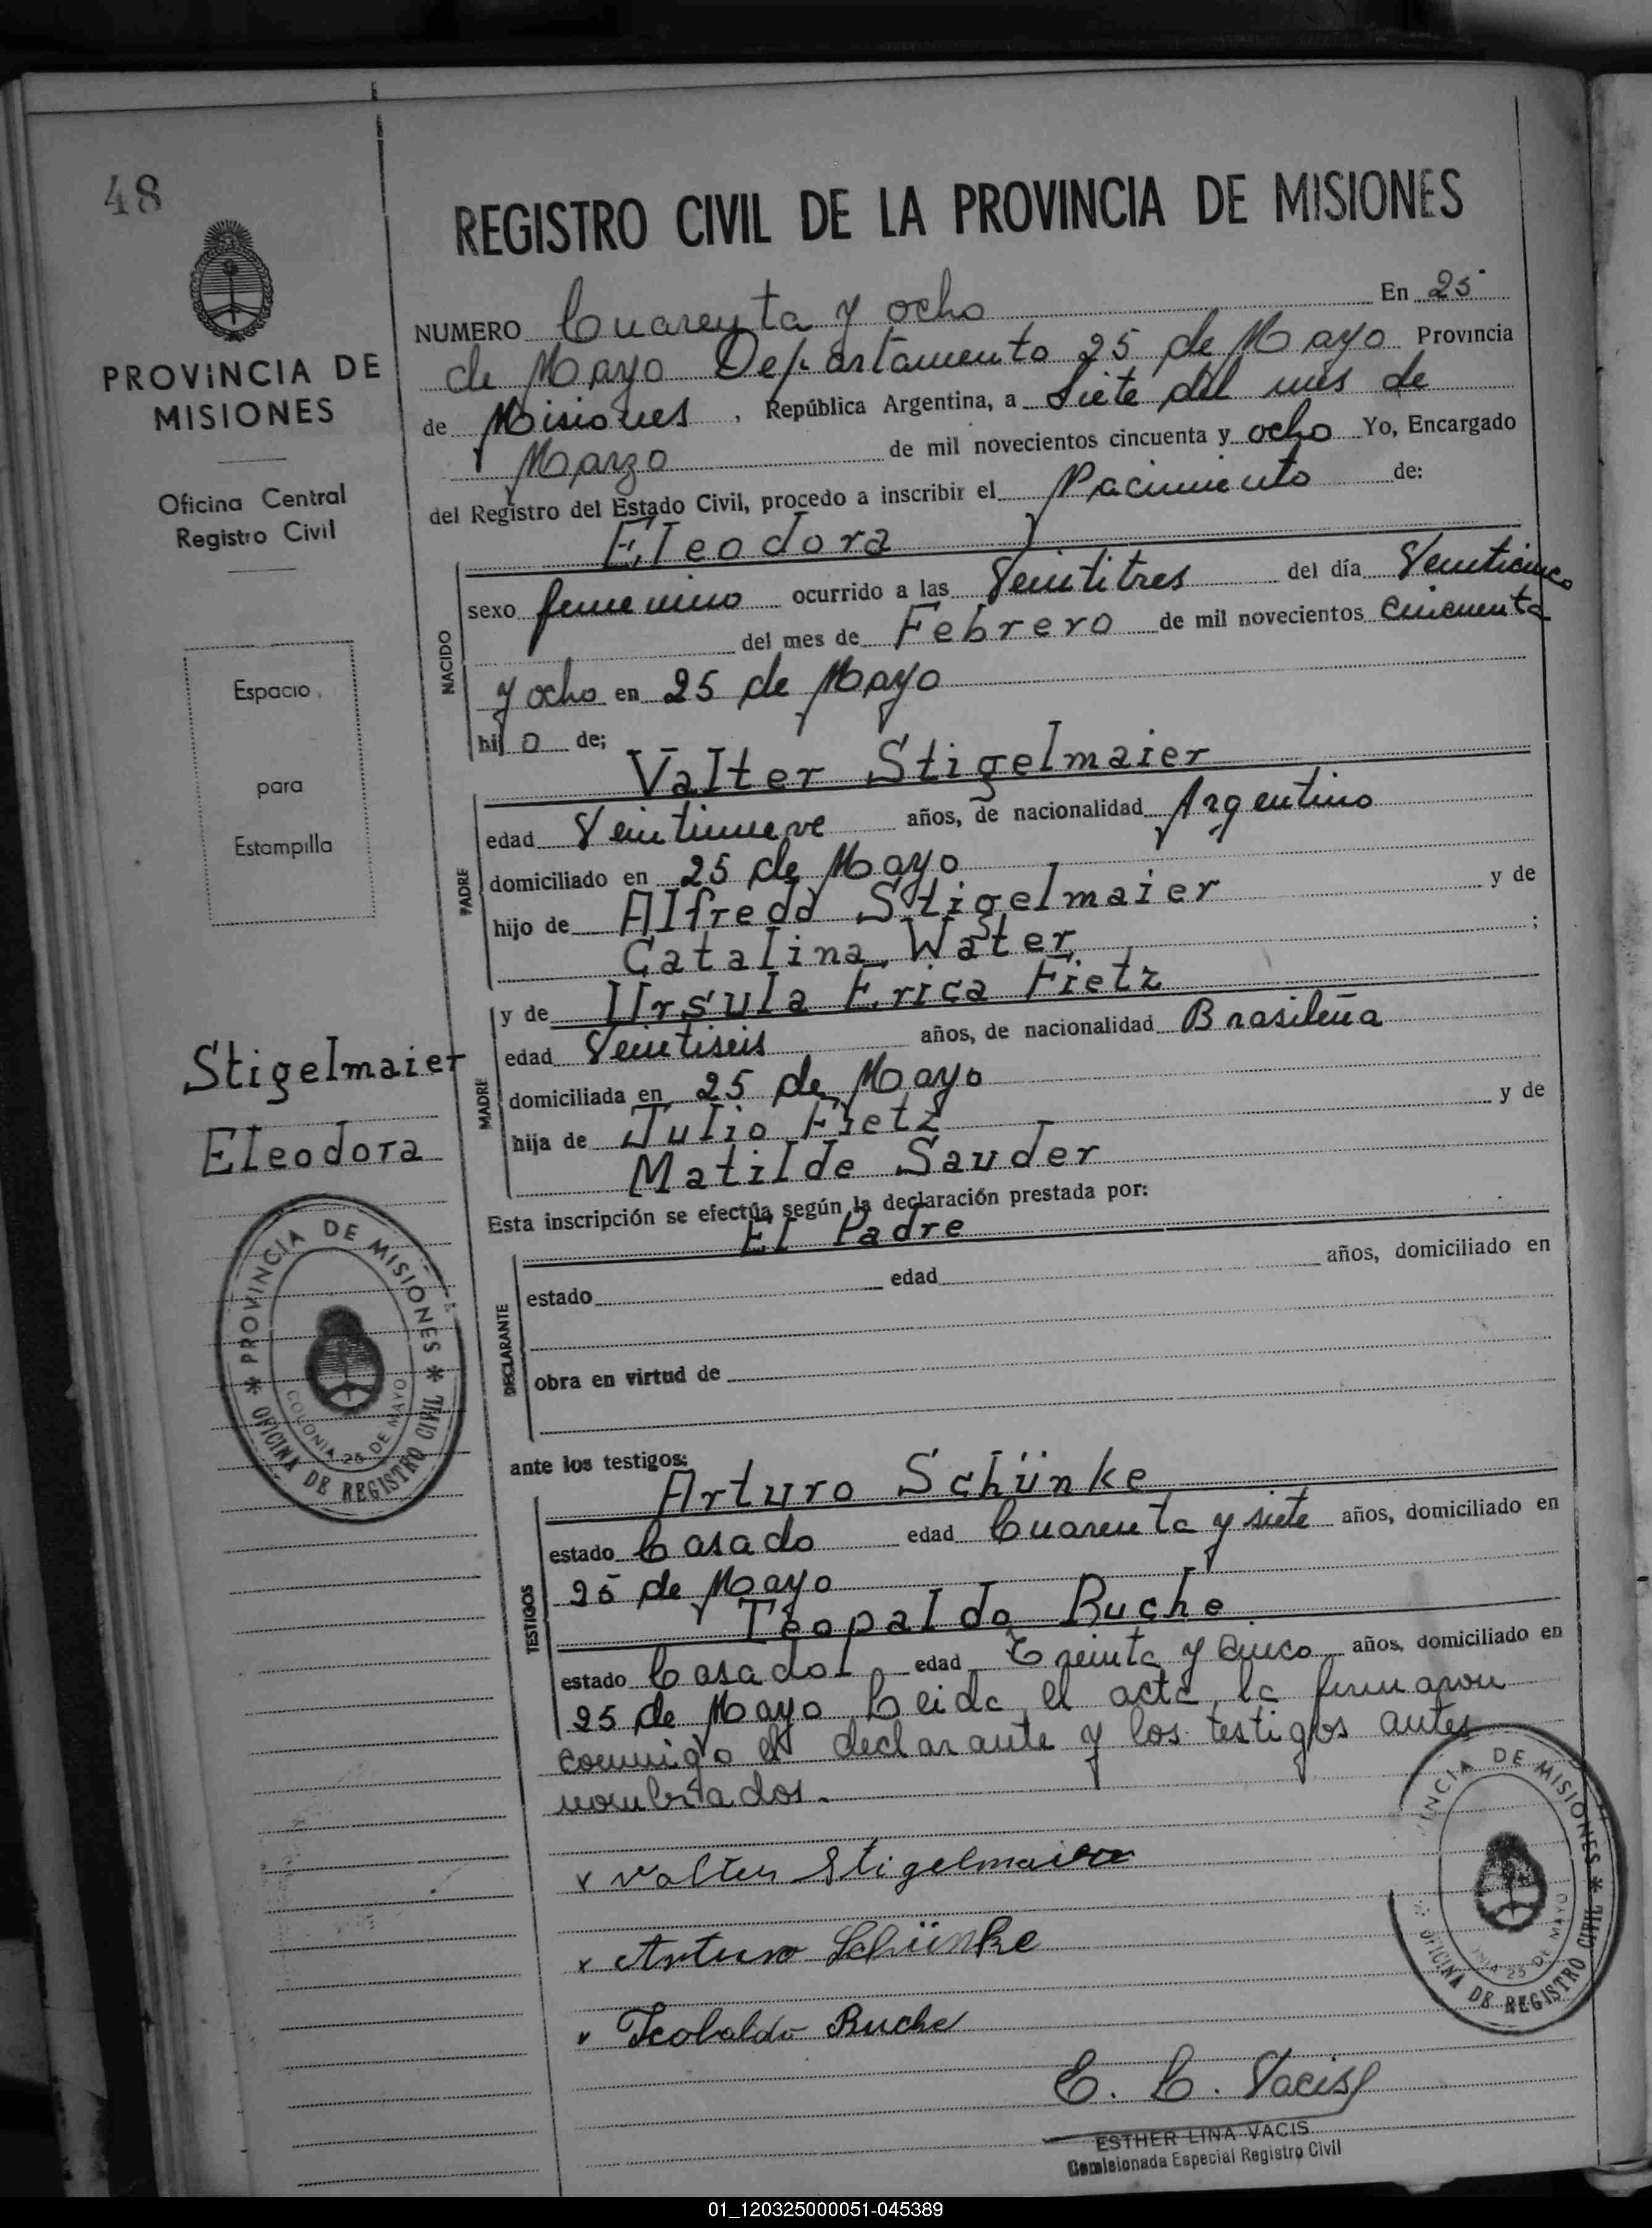 48
REGISTRO CIVIL DE LA PROVINCIA DE MISIONES
PROVINCIA DE
MISIONES
Oficina Central
Registro Civil
Espacio
para
Estampilla
Stigelmaier
Eleodora
PROVINCIA DE MISIONES * OFICINA DE REGISTRO CIVIL *
COLONIA 25 DE MAYO
NUMERO Cuarenta y ocho En 25
de Mayo Departamento 25 de Mayo Provincia
de Misiones, República Argentina, a Siete del mes de
Marzo de mil novecientos cincuenta y ocho Yo, Encargado
del Registro del Estado Civil, procedo a inscribir el Nacimiento de:
Eleodora
NACIDO
sexo femenino ocurrido a las Veintitres del día Veinticinco
del mes de Febrero de mil novecientos cincuenta
y ocho en 25 de Mayo
hij o de;
Valter Stigelmaier
PADRE
edad Veintinueve años, de nacionalidad Argentino
domiciliado en 25 de Mayo
hijo de Alfredo Stigelmaier y de
Catalina Water ;
y de Ursula Erica Fietz
MADRE
edad Veintiseis años, de nacionalidad Brasileña
domiciliada en 25 de Mayo
hija de Julio Fietz y de
Matilde Sauder
Esta inscripción se efectúa según la declaración prestada por:
El Padre
DECLARANTE
estado edad años, domiciliado en
obra en virtud de
ante los testigos:
Arturo Schünke
TESTIGOS
estado Casado edad Cuarenta y siete años, domiciliado en
25 de Mayo
Teopaldo Buche
estado Casado edad Treinta y cinco años, domiciliado en
25 de Mayo Leida el acta, la firmaron
conmigo el declarante y los testigos antes
nombrados.
x Valter Stigelmaier
x Arturo Schünke
x Teobaldo Buche
INCIA DE MISIONES * OFICINA DE REGISTRO CIVIL
NIA 25 DE MAYO
E. L. Vacis
ESTHER LINA VACIS
Comisionada Especial Registro Civil
01_120325000051-045389